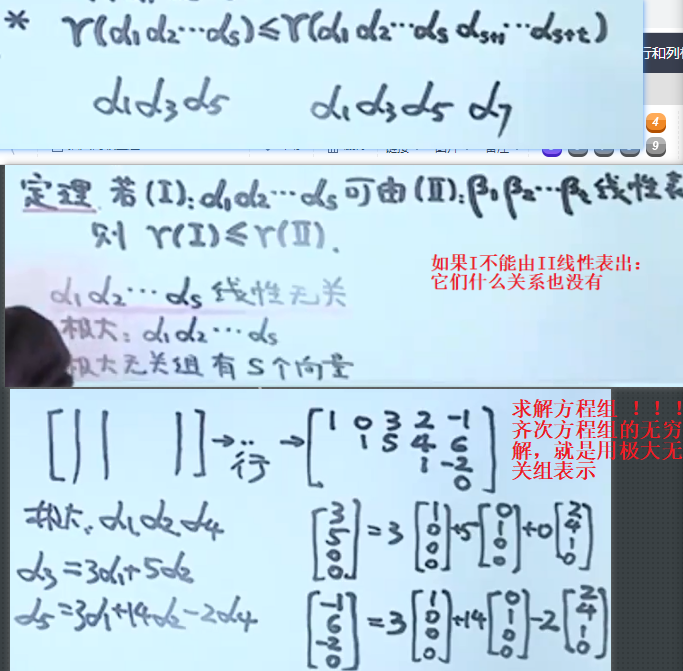 * r(α1 α2 ⋯ αs) ≤ r(α1 α2 ⋯ αs αs+1 ⋯ αs+t)
行和列
α1 α3 α5    α1 α3 α5 α7
4
9
定理 若(I): α1 α2 ⋯ αs 可由(II): β1 β2 ⋯ βt 线性表
则 r(I) ≤ r(II).
如果I不能由II线性表出:
它们什么关系也没有
α1 α2 ⋯ αs 线性无关
极大: α1 α2 ⋯ αs
极大无关组有S个向量
求解方程组 ！！！
齐次方程组的无穷
解，就是用极大无
关组表示
[| |   |] → 行 → [1 0 3 2 -1
1 5 4 6
1 -2
0]
极大: α1 α2 α4
α3 = 3α1 + 5α2
α5 = 3α1 + 14α2 - 2α4
[3 5 0 0] = 3 [1 0 0 0] + 5 [0 1 0 0] + 0 [2 4 1 0]
[-1 6 -2 0] = 3 [1 0 0 0] + 14 [0 1 0 0] - 2 [2 4 1 0]